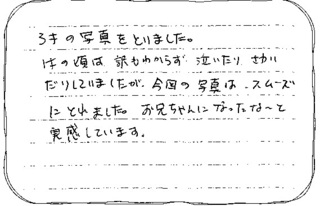 3才の写真をとりました。
1才の頃は訳もわからず 泣いたり さわい
だりしていましたが、今回の写真は、スムーズ
にとれました。お兄ちゃんになったな〜と
実感しています。